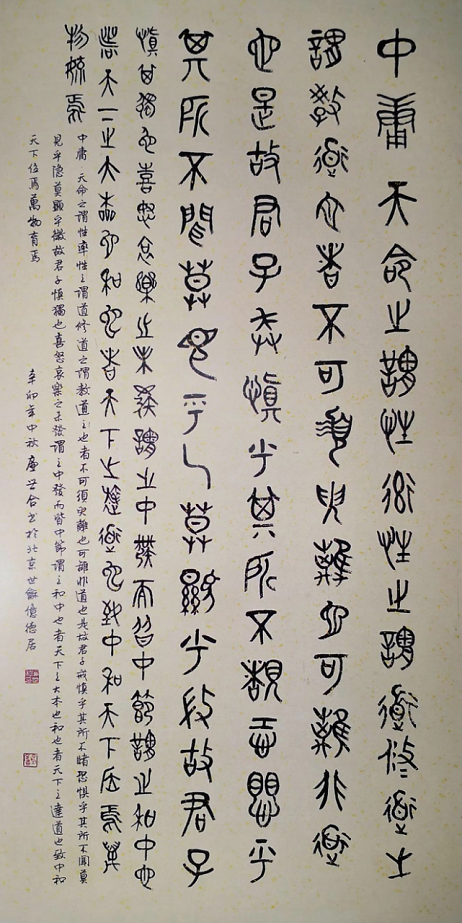 中庸天命之謂性率性之謂道修道之
謂教道也者不可須臾離也可離非道
也是故君子戒慎乎其所不覩恐懼乎
其所不聞莫見乎隱莫顯乎微故君子
慎其獨也喜怒哀樂之未發謂之中發而皆中節謂之和中也
者天下之大本也和也者天下之達道也致中和天下位焉萬
物育焉
中庸 天命之謂性率性之謂道修道之謂教道之也者不可須臾離也可離非道也是故君子戒慎乎其所不睹恐懼乎其所不聞莫
見乎隱莫顯乎微故君子慎獨也喜怒哀樂之未發謂之中發而皆中節謂之和中也者天下之大本也和也者天下之達道也致中和
天下位焉萬物育焉 辛卯年中秋 於北京世億德居